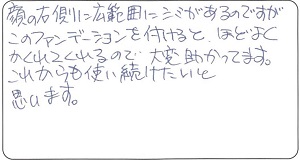 顔の右側に広範囲にシミがあるのですが
このファンデーションを付けると、ほどよく
かくれてくれるので 大変助かってます。
これからも使い続けたいと
思います。